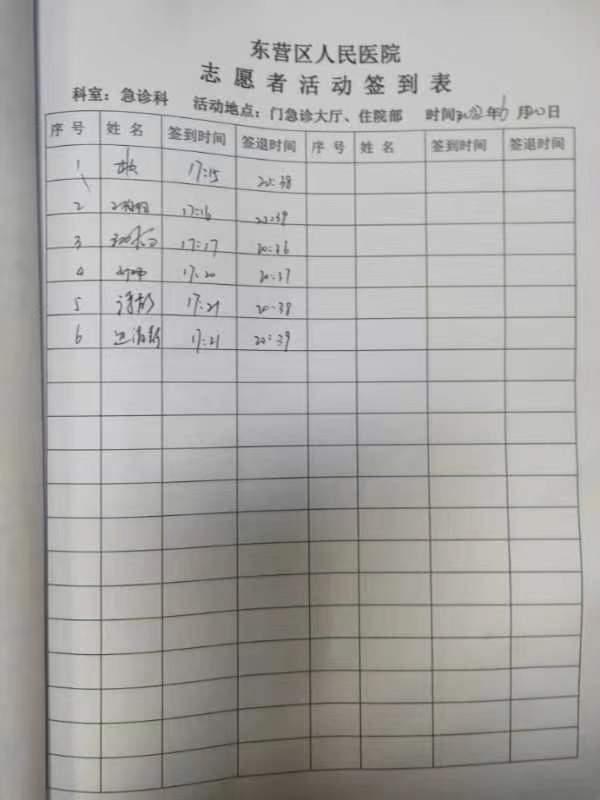 东营区人民医院
志愿者活动签到表
科室：急诊科 活动地点：门急诊大厅、住院部 时间 年6月 日
序号 姓名 签到时间 签退时间 序号 姓名 签到时间 签退时间
1 17:15 20:38
2 17:16 20:39
3 17:17 20:36
4 17:20 20:37
5 17:21 20:38
6 17:21 20:39